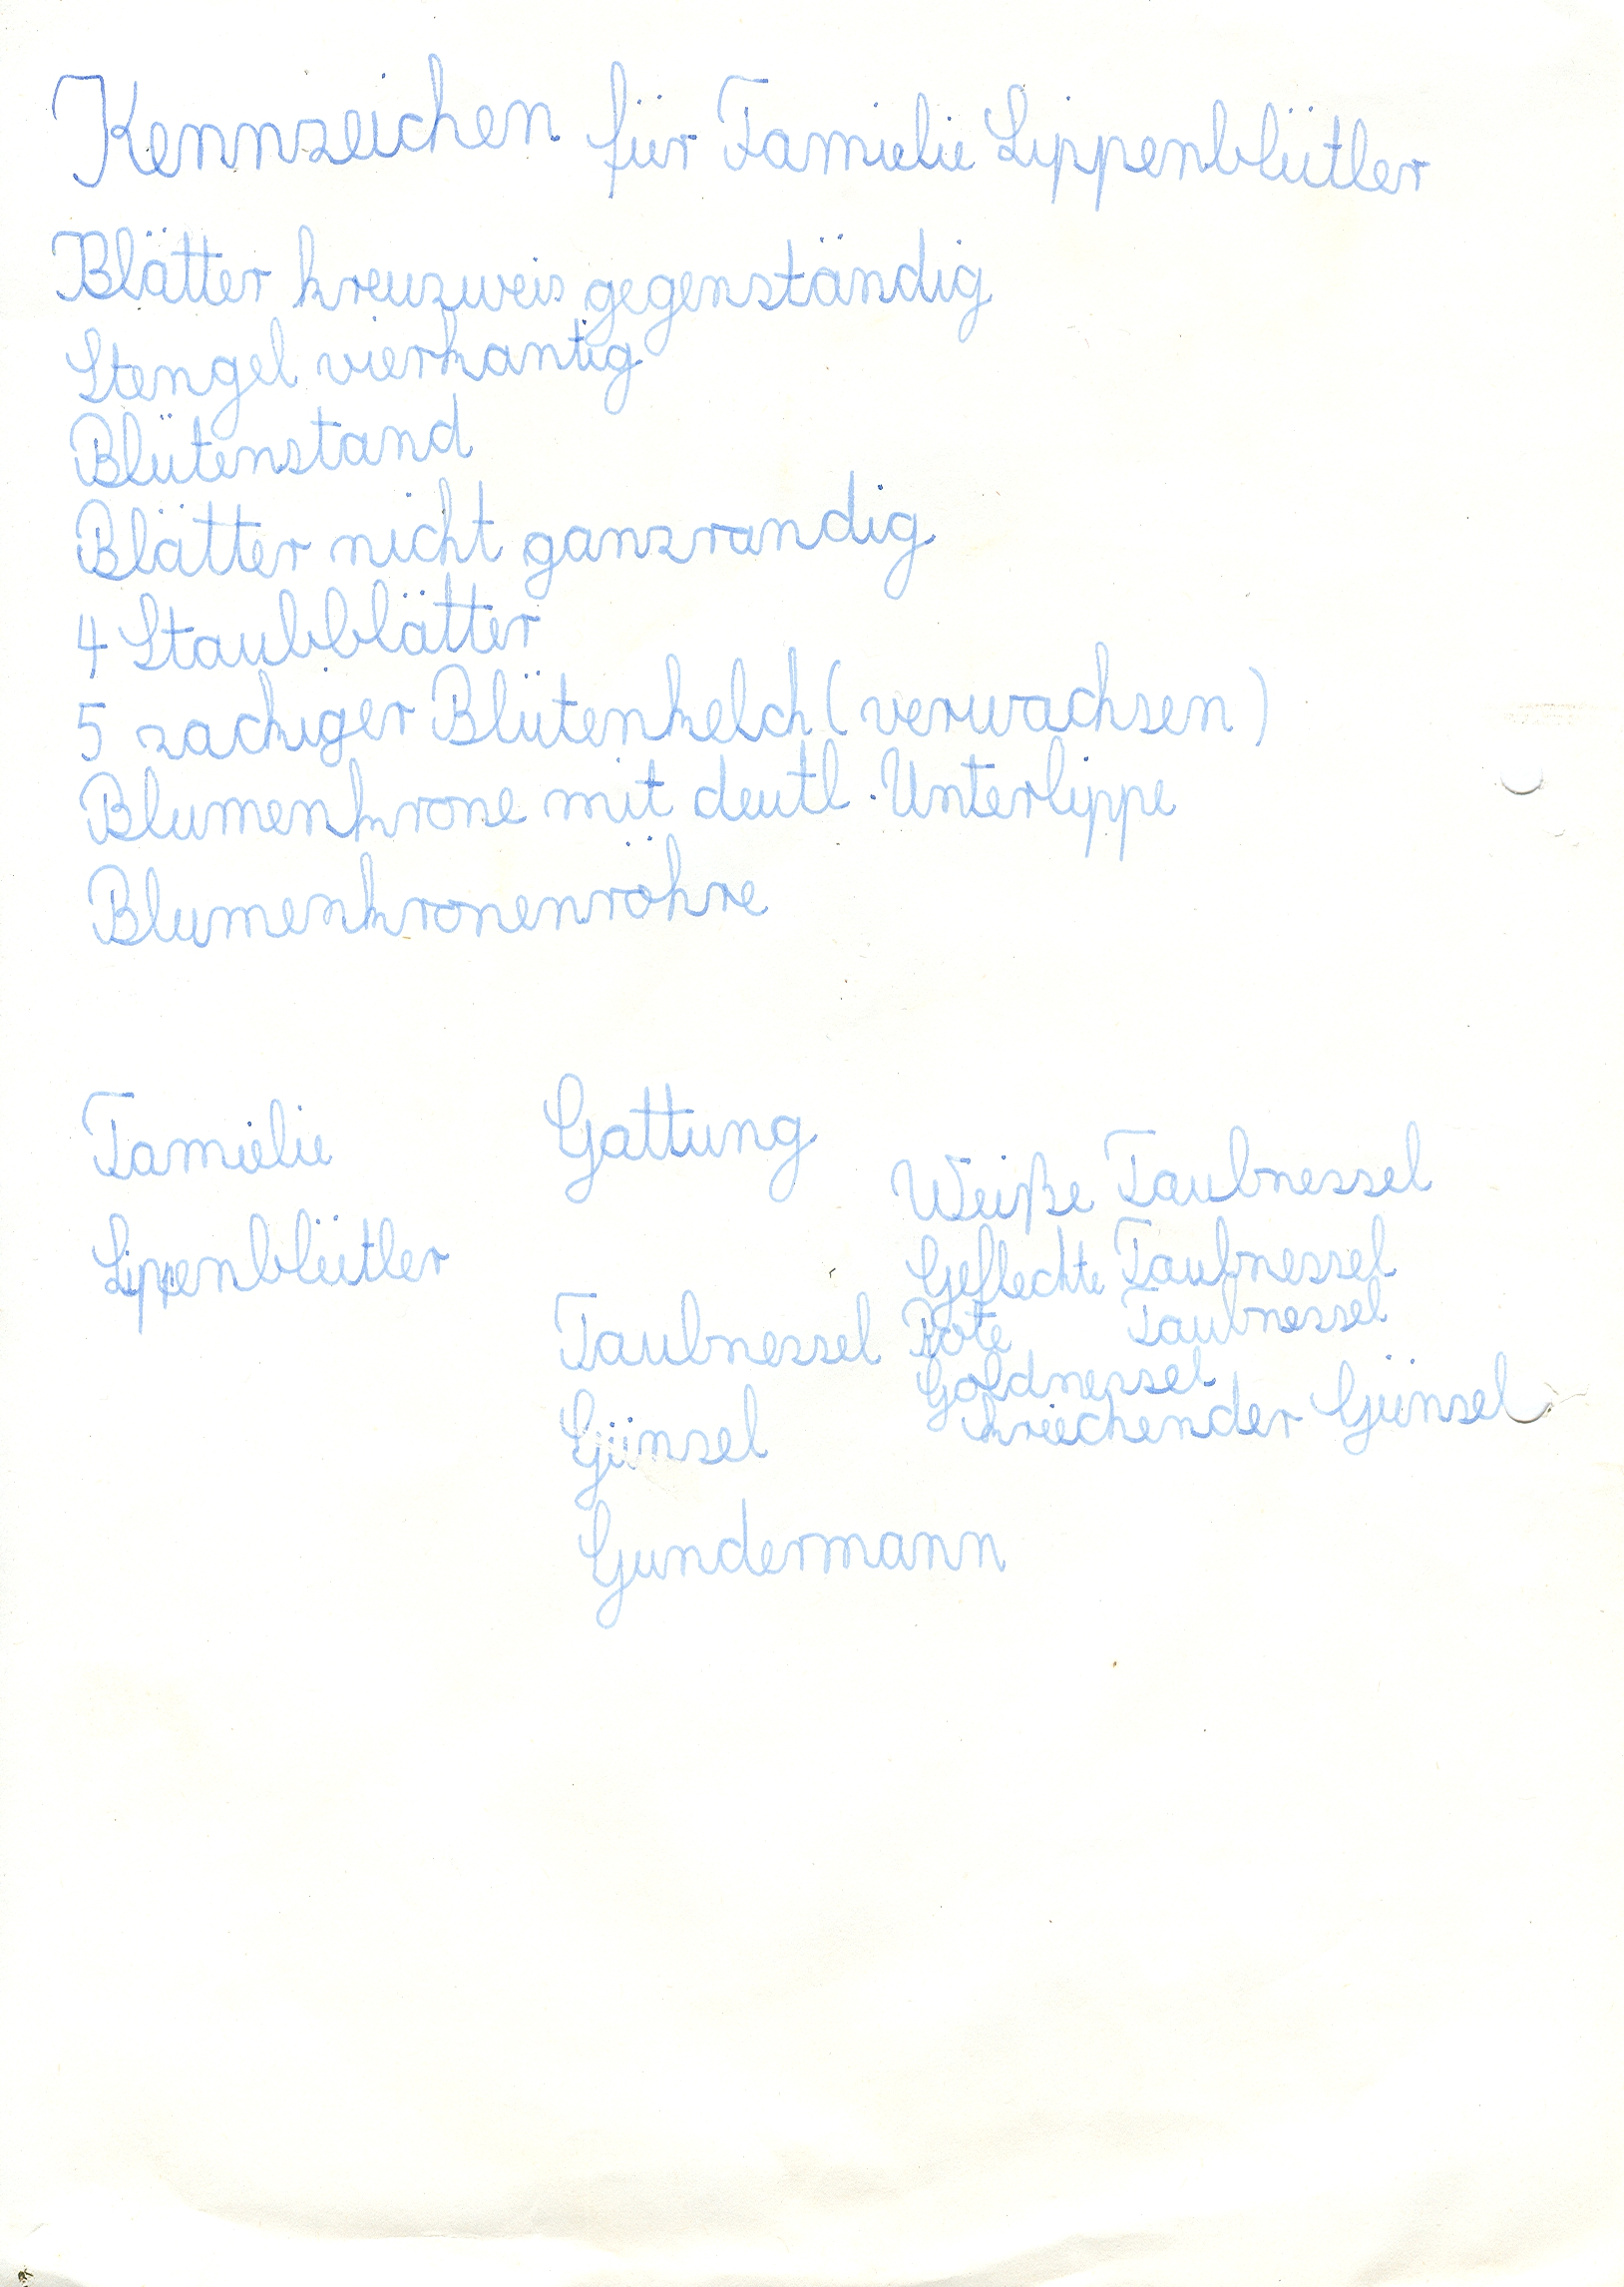 Kennzeichen für Famielie Lippenblütler
Blätter kreuzweis gegenständig
Stengel vierkantig
Blütenstand
Blätter nicht ganzrandig
4 Staubblätter
5 zackiger Blütenkelch (verwachsen)
Blumenkrone mit deutl. Unterlippe
Blumenkronenröhre
Famielie Gattung
Weiße Taubnessel
Lippenblütler
Geflechte Taubnessel
Taubnessel Rote Taubnessel
Goldnessel
Günsel kriechender Günsel
Gundermann